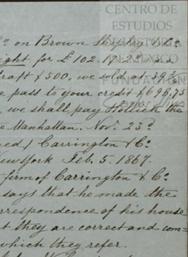 CENTRO DE
ESTUDIOS
on Brown Shipley & Co
ight, for £102.17.2
raft £500, we sold
e pass to your credit $696,75
, we shall pay
e Manhattan. Nov. 23d
ned) Carrington & Co
New York Feb. 5. 1867.
firm of Carrington & Co.
says that he made the
rrespondence of his house
t they are correct and con-
which they refer.